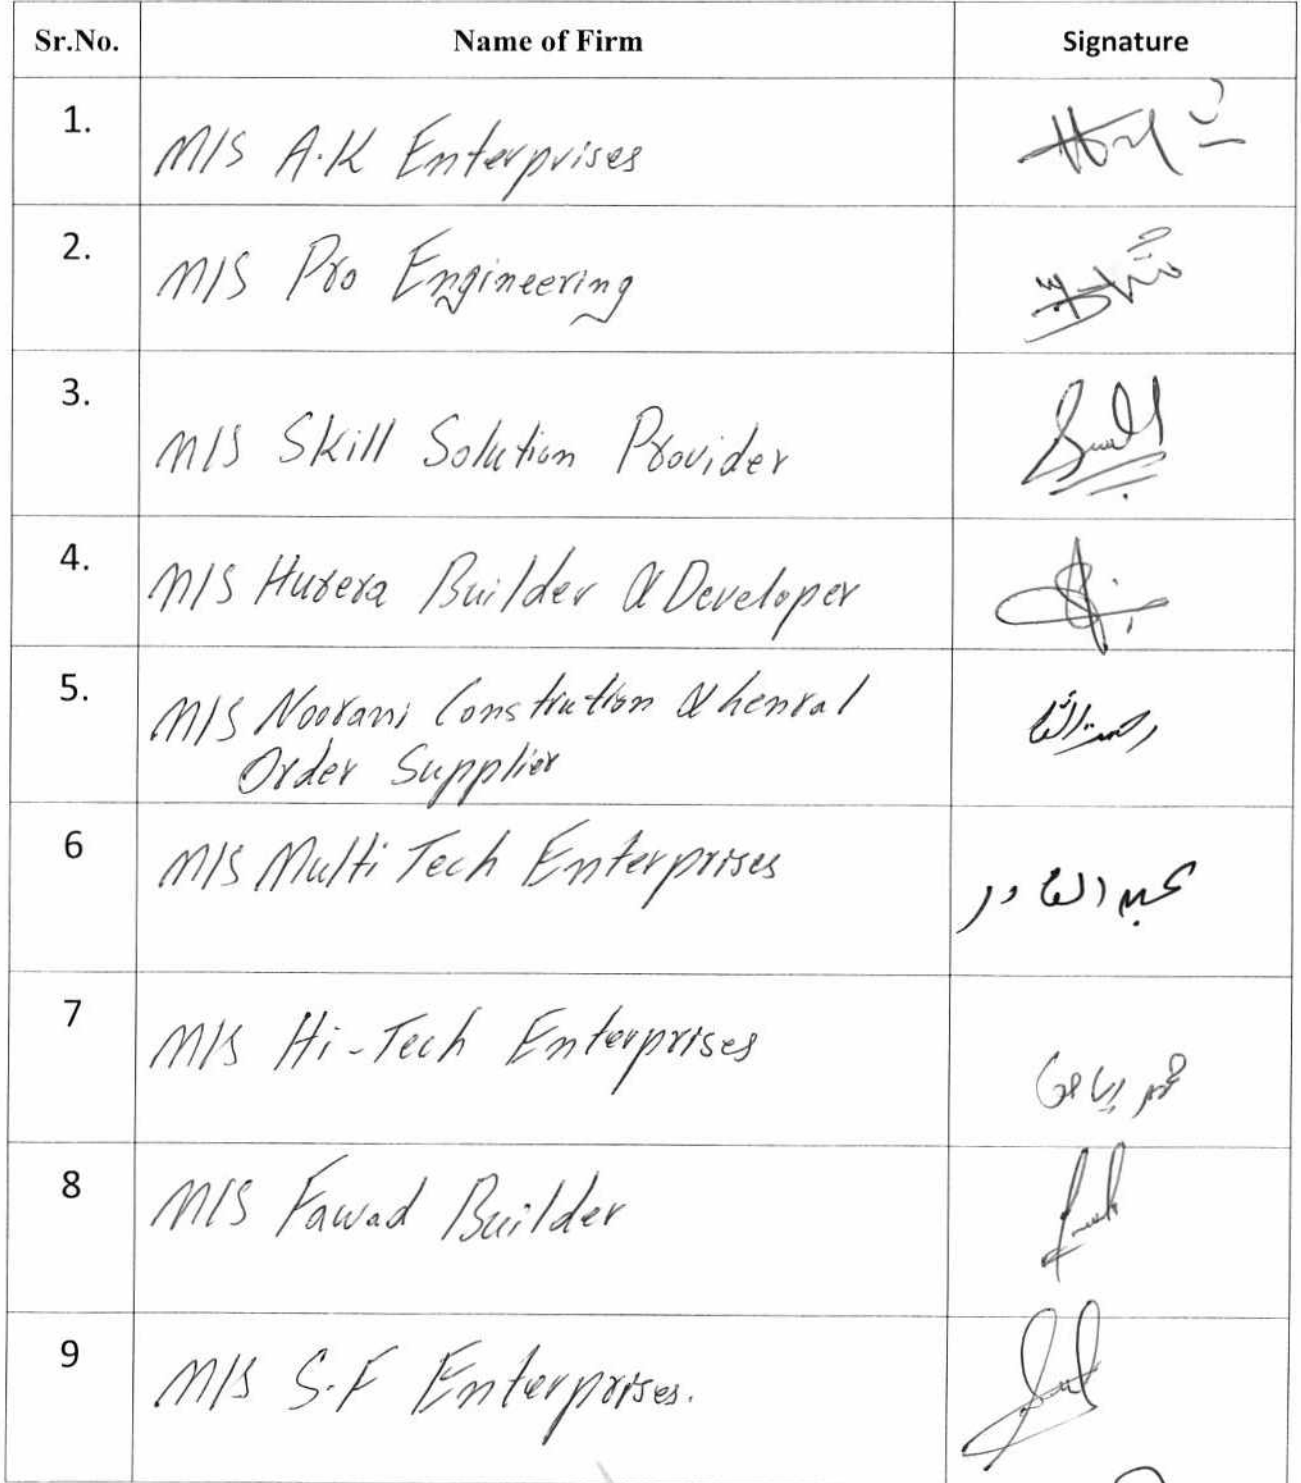 Sr.No. Name of Firm Signature
1. M/S A.K Enterprises
2. M/S Pro Engineering
3. M/S Skill Solution Provider
4. M/S Hurera Builder & Developer
5. M/S Noorani Constrution & henral
Order Supplier
6 M/S Multi Tech Enterprises عبدالقادر
7 M/S Hi-Tech Enterprises
8 M/S Fawad Builder
9 M/S S.F Enterprises.